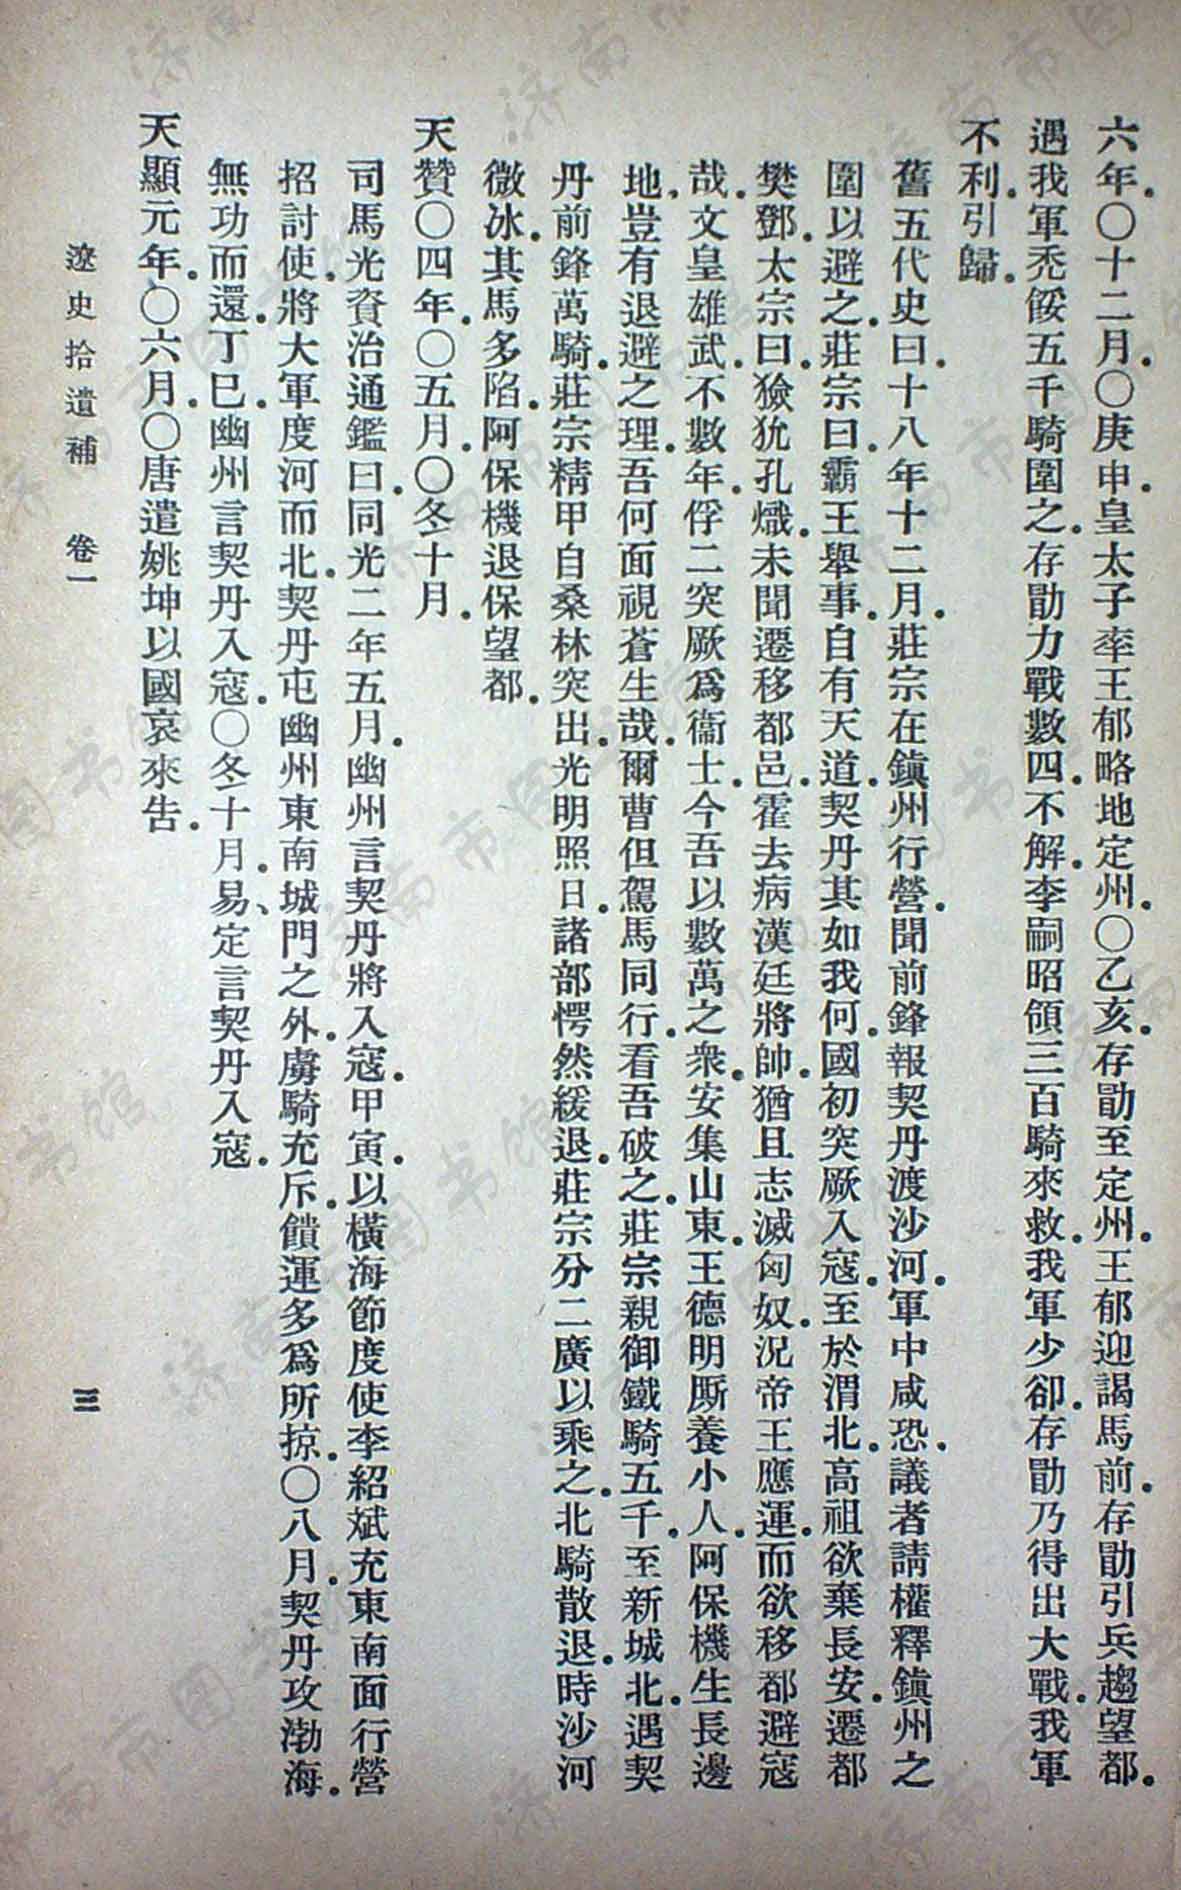 六年。〇十二月。〇庚申。皇太子率王郁略地定州。〇乙亥。存勖至定州。王郁迎謁馬前。存勖引兵趨望都。
遇我軍禿餒五千騎圍之。存勖力戰數四。不解。李嗣昭領三百騎來救。我軍少卻。存勖乃得出大戰。我軍
不利。引歸。
舊五代史曰。十八年十二月。莊宗在鎮州行營。聞前鋒報契丹渡沙河。軍中咸恐。議者請權釋鎮州之
圍以避之。莊宗曰。霸王舉事。自有天道。契丹其如我何。國初突厥入寇。至於渭北。高祖欲棄長安。遷都
樊鄧。太宗曰。獫狁孔熾。未聞遷移都邑。霍去病漢廷將帥。猶且志滅匈奴。況帝王應運。而欲移都避寇
哉。文皇雄武。不數年。俘二突厥爲衞士。今吾以數萬之衆。安集山東。王德明厮養小人。阿保機生長邊
地。豈有退避之理。吾何面視蒼生哉。爾曹但駕馬同行。看吾破之。莊宗親御鐵騎五千。至新城北。遇契
丹前鋒萬騎。莊宗精甲自桑林突出。光明照日。諸部愕然緩退。莊宗分二廣以乘之。北騎散退。時沙河
微冰。其馬多陷。阿保機退保望都。
天贊〇四年。〇五月。〇冬十月。
司馬光資治通鑑曰。同光二年五月。幽州言契丹將入寇。甲寅。以橫海節度使李紹斌充東南面行營
招討使。將大軍度河而北。契丹屯幽州東南城門之外。虜騎充斥。饋運多爲所掠。〇八月。契丹攻渤海。
無功而還。丁巳。幽州言契丹入寇。〇冬十月。易、定言契丹入寇。
天顯元年。〇六月。〇唐遣姚坤以國哀來告。
遼史拾遺補 卷一
三
济南市图书馆